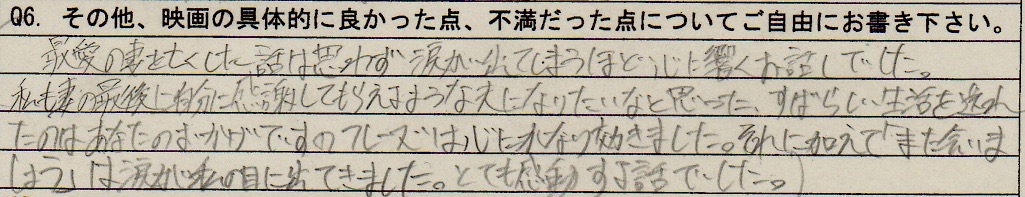 Q6. その他、映画の具体的に良かった点、不満だった点についてご自由にお書き下さい。
最愛の妻を亡くした話は思わず涙が出てしまうほど心に響くお話しでした。
私も妻の最後に自分に感謝してもらえるような夫になりたいなと思った、すばらしい生活を送れ
たのはあなたのおかげですのフレーズは心にかなり効きました。それに加えて「また会いま
しょう」は涙が私の目に出てきました。とても感動する話でした。